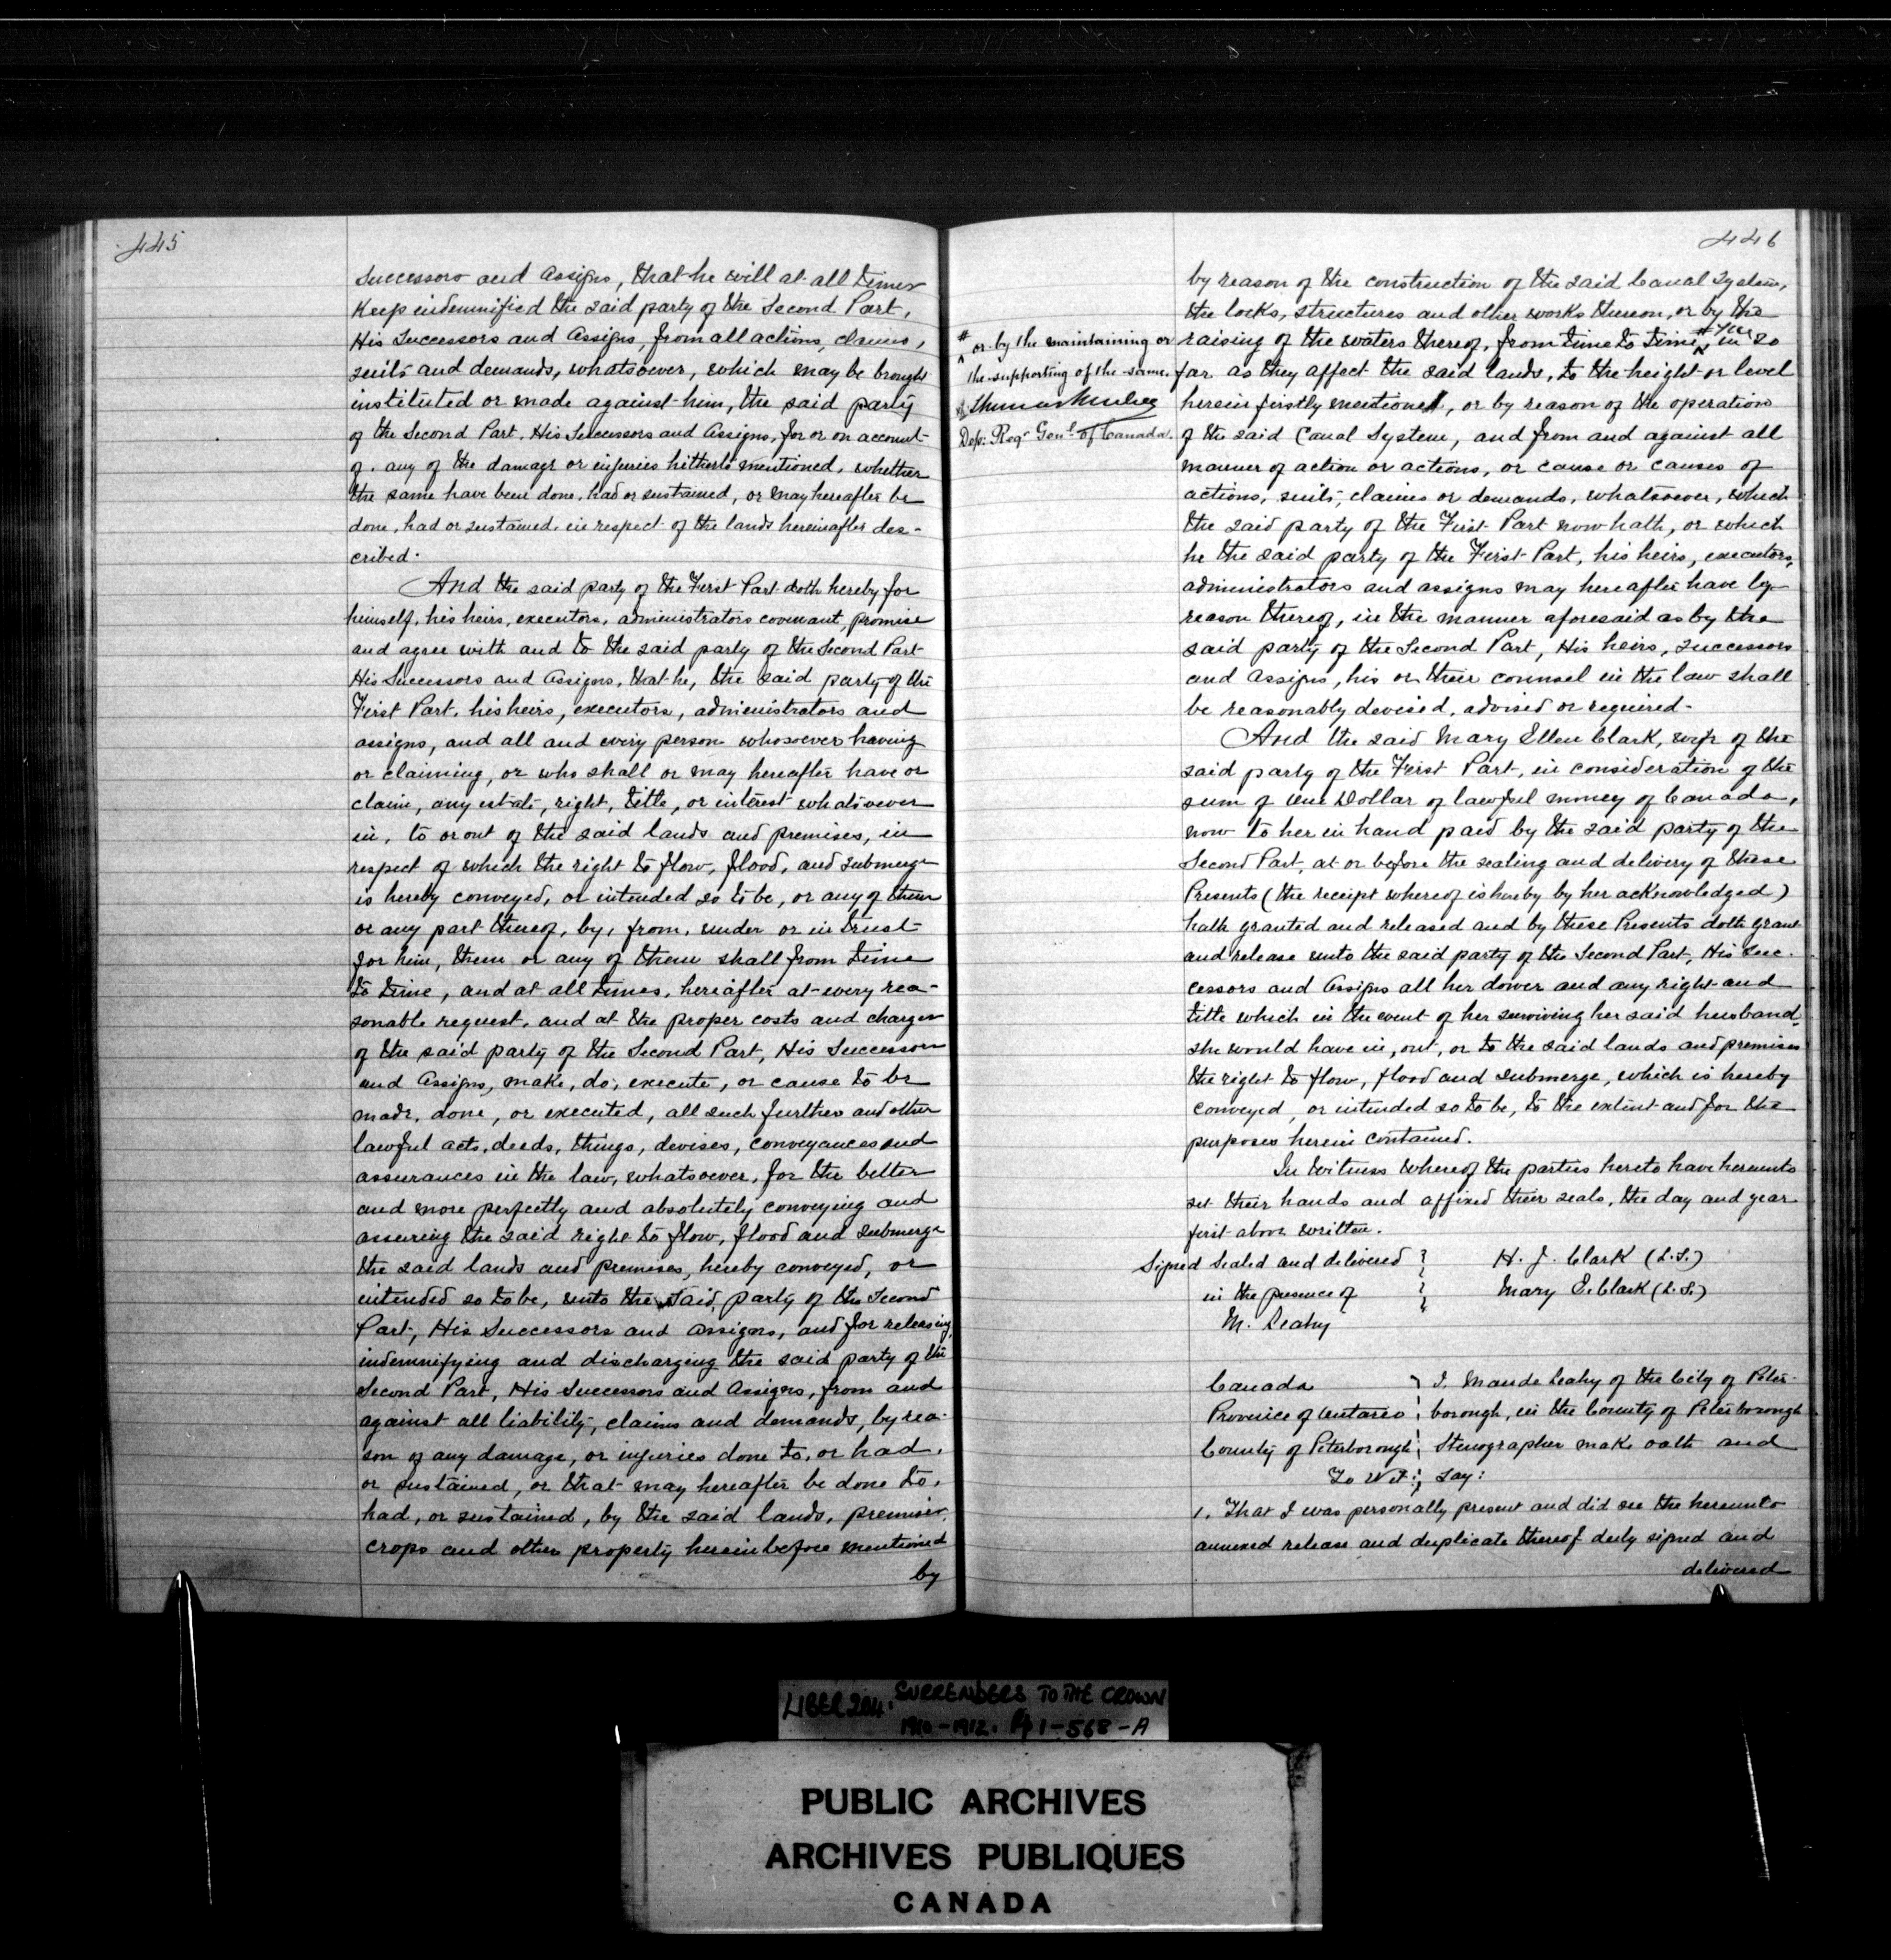 445
Successors and Assigns, that he will at all times
Keep indemnified the said party of the Second Part,
His Successors and Assigns, from all actions, claims,
suits and demands, whatsoever, which may be brought
instituted or made against him, the said party
of the Second Part, His Successors and Assigns, for or on account
of, any of the damage or injuries hitherto mentioned, whether
the same have been done, had or sustained, or may hereafter be
done, had or sustained, in respect of the lands hereinafter des-
cribed.
And the said party of the First Part doth hereby for
himself, his heirs, executors, administrators covenant, promise
and agree with and to the said party of the Second Part
His Successors and Assigns, that he, the said party of the
First Part, his heirs, executors, administrators and
assigns, and all and every person whosoever having
or claiming, or who shall or may hereafter have or
claim, any estate, right, title, or interest whatsoever
in, to or out of the said lands and premises, in
respect of which the right to flow, flood, and submerge
is hereby conveyed, or intended so to be, or any of them
or any part thereof, by, from, under or in trust
for him, them or any of them shall from time
to time, and at all times, hereafter at every rea-
sonable request, and at the proper costs and charges
of the said party of the Second Part, His Successors
and Assigns, make, do, execute, or cause to be
made, done, or executed, all such further and other
lawful acts, deeds, things, devises, conveyances and
assurances in the law, whatsoever, for the better
and more perfectly and absolutely conveying and
assuring the said right to flow, flood and submerge
the said lands and premises, hereby conveyed, or
intended so to be, unto the said party of the Second
Part, His Successors and Assigns, and for releasing,
indemnifying and discharging the said party of the
Second Part, His Successors and Assigns, from and
against all liability, claims and demands, by rea-
son of any damage, or injuries done to, or had,
or sustained, or that may hereafter be done to,
had, or sustained, by the said lands, premises,
crops and other property hereinbefore mentioned
by
446
by reason of the construction of the said Canal System,
the locks, structures and other works thereon, or by the
raising of the waters thereof, from time to time # in so
far as they affect the said lands, to the height or level
herein firstly mentioned, or by reason of the operation
of the said Canal System, and from and against all
manner of action or actions, or cause or causes of
actions, suits, claims or demands, whatsoever, which
the said party of the First Part now hath, or which
he the said party of the First Part, his heirs, executors,
administrators and assigns may hereafter have by
reason thereof, in the manner aforesaid as by the
said party of the Second Part, His heirs, successors
and Assigns, his or their counsel in the law shall
be reasonably devised, advised or required.
# or by the maintaining or
the supporting of the same.
Dep: Regr Genl of Canada.
And the said Mary Ellen Clark, wife of the
said party of the First Part, in consideration of the
sum of One Dollar of lawful money of Canada,
now to her in hand paid by the said party of the
Second Part, at or before the sealing and delivery of these
Presents (the receipt whereof is hereby by her acknowledged)
hath granted and released and by these Presents doth grant
and release unto the said party of the Second Part, His Suc-
cessors and Assigns all her dower and any right and
title which in the event of her surviving her said husband,
she would have in, out, or to the said lands and premises
the right to flow, flood and submerge, which is hereby
conveyed, or intended so to be, to the extent and for the
purposes herein contained.
In Witness Whereof the parties hereto have hereunto
set their hands and affixed their seals, the day and year
first above written.
Signed Sealed and delivered } H. J. Clark (L.S.)
in the presence of } Mary E. Clark (L.S.)
M. Leahy
Canada } I, Maude Leahy of the City of Peter-
Province of Ontario } borough, in the County of Peterborough
County of Peterborough } Stenographer make oath and
To Wit: } say:
1. That I was personally present and did see the hereunto
annexed release and duplicate thereof duly signed and
delivered
LIBER 204. SURRENDERS TO THE CROWN
1910-1912. Pp 1-568-A
PUBLIC ARCHIVES
ARCHIVES PUBLIQUES
CANADA